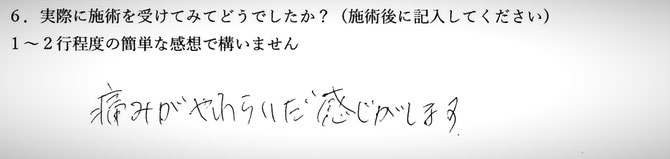 ６．実際に施術を受けてみてどうでしたか？（施術後に記入してください）
１～２行程度の簡単な感想で構いません
痛みがやわらいだ感じがします